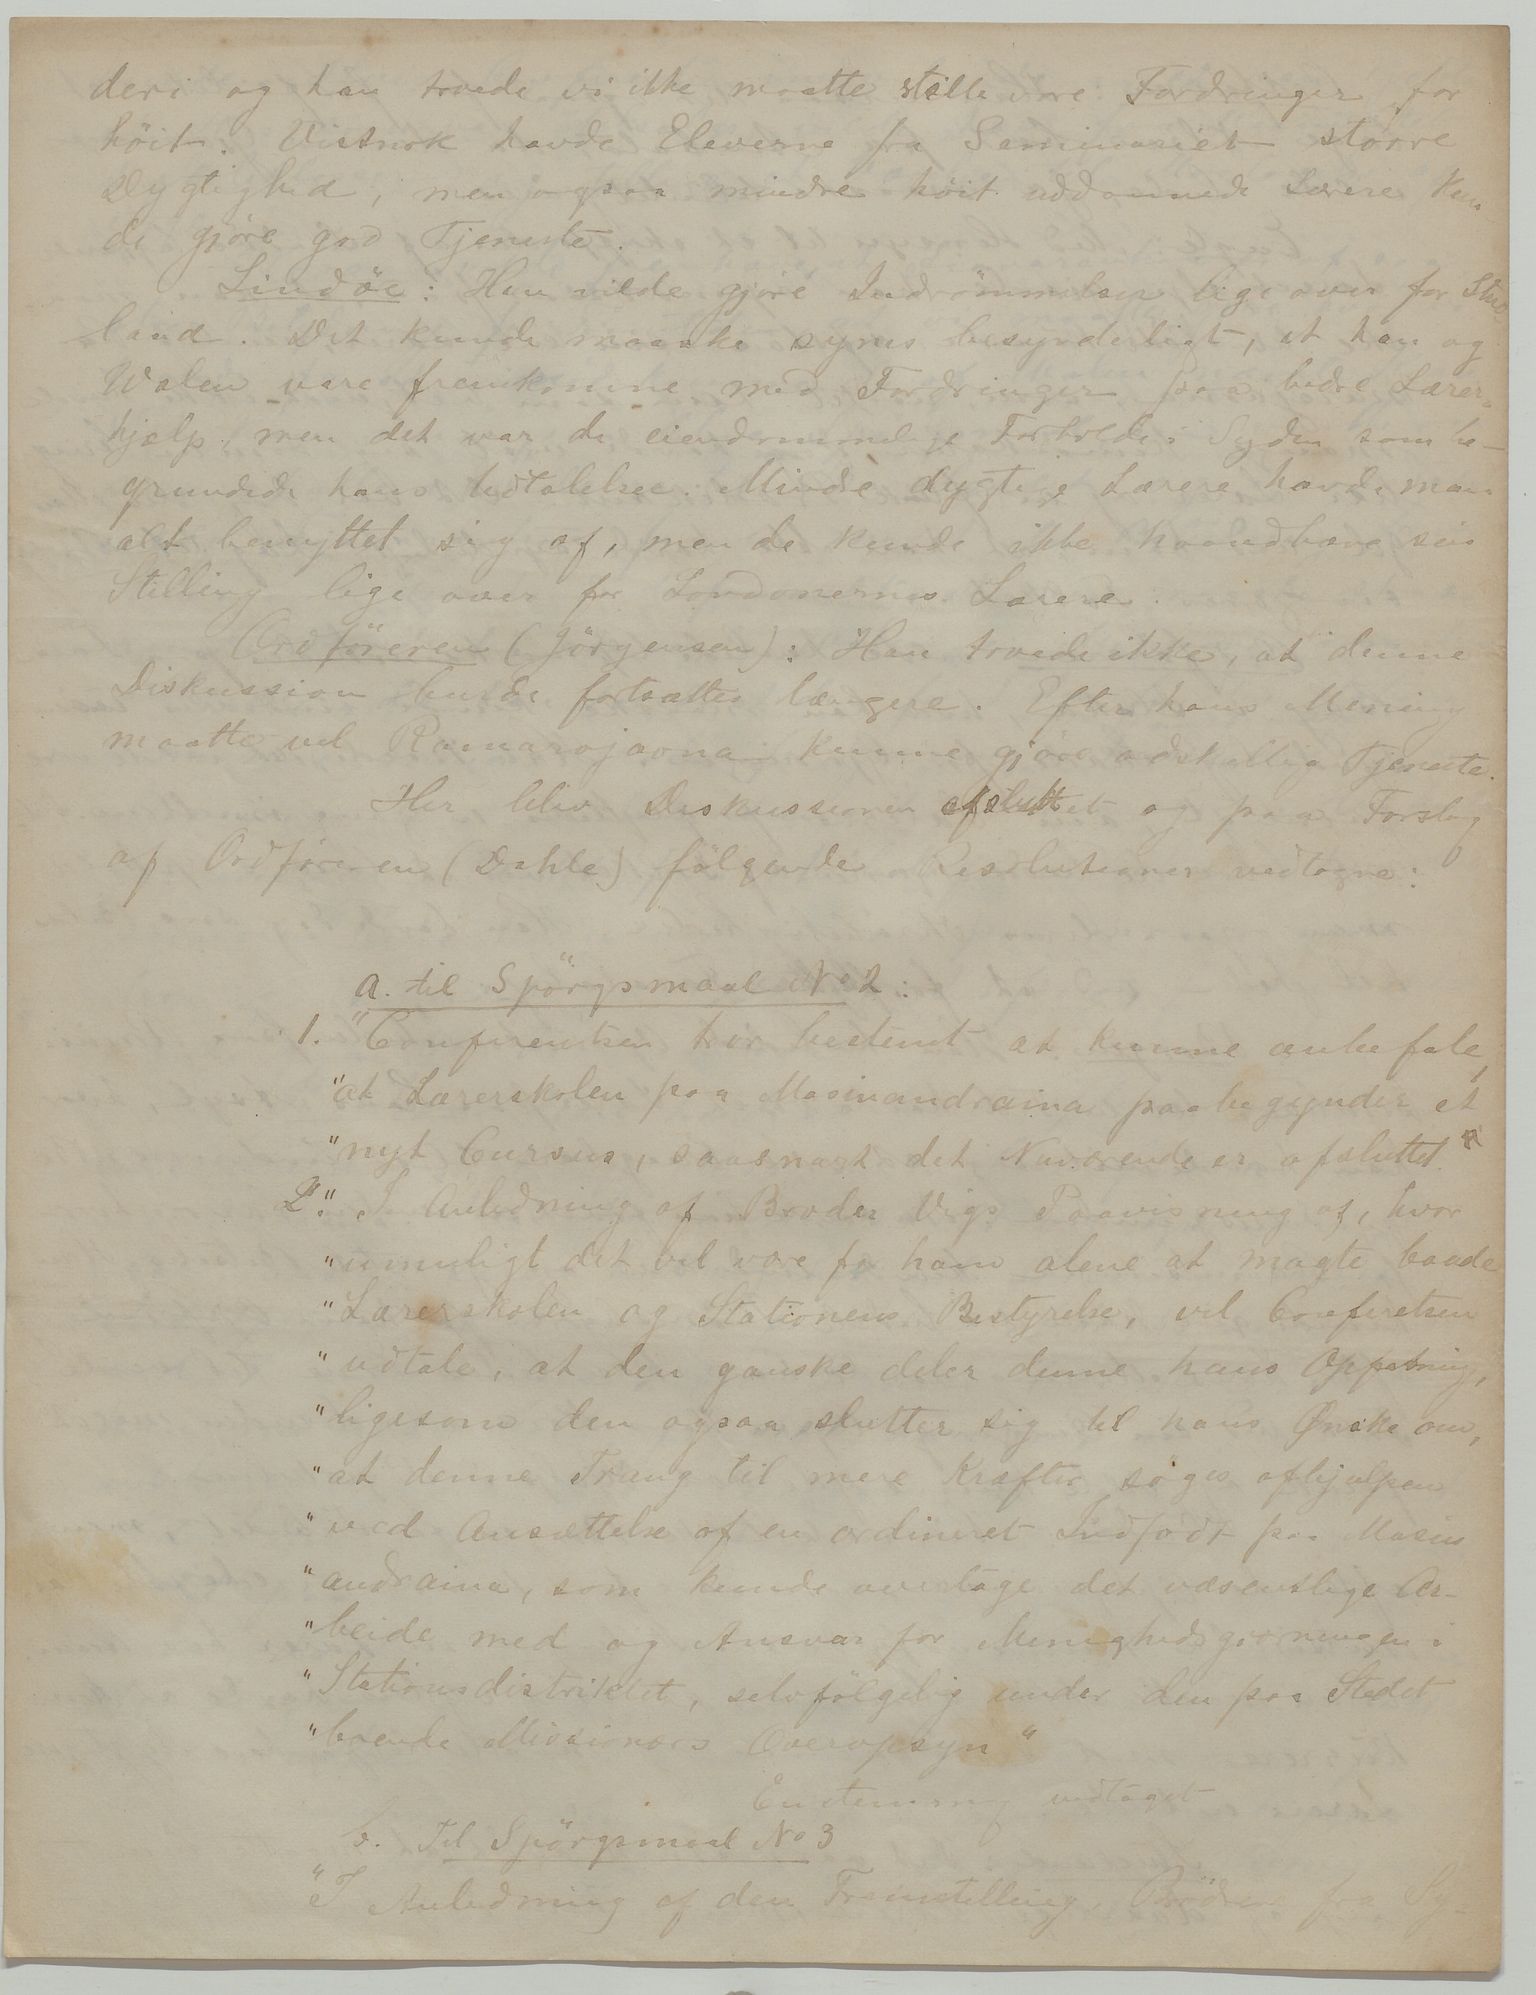 deri og han troede vi ikke maatte stille vore Fordringer for
höit. Vistnok havde Eleverne fra Seminariet större
Dygtighed, men ogsaa mindre höit uddannede Lærere kun-
de gjöre god Tjeneste.
Lindöe: Han vilde gjöre Indrömmelser lige over for Stue
land. Det kunde maaske synes besynderligt, at han og
Walen vare fremkomne med Fordringer paa bedre Lærer-
hjælp, men det var de eiendommelige Forholde i Syden som be-
grundede hans Udtalelser. Mindre dygtige Lærere havde man
alt benyttet sig af, men de kunde ikke haandhæve sin
Stilling lige over for Londonernes Lærere.
Ordföreren (Jörgensen): Han troede ikke, at denne
Diskussion burde fortsættes længere. Efter hans Mening
maatte vel Ramarojaona kunne gjöre adskillig Tjeneste.
Her blev Diskussionen afsluttet og paa Forslag
af Ordföreren (Dahle) fölgende Resolutioner vedtagne:
a. til Spörgsmaal No 2:
1. "Conferentsen tror bestemt at kunne anbefale,
"at Lærerskolen paa Masinandraina paabegynder et
"nyt Cursus, saasnart det Nuværende er afsluttet."
2. "I Anledning af Broder Vigs Paavisning af, hvor
"umuligt det vil være for ham alene at magte baade
"Lærerskolen og Stationens Bestyrelse, vil Conferetsen
"udtale, at den ganske deler denne hans Opfatning,
"ligesom den ogsaa slutter sig til hans Ønske om,
"at denne Trang til mere Kræfter söges afhjulpen
"ved Ansættelse af en ordineret Indfödt paa Masin
"andraina, som kunde overtage det væsentlige Ar-
"beide med og Ansvar for Menighedsgjerningen i
"Stationsdistriktet, selvfölgelig under den paa Stedet
"boende Missionærs Overopsyn"
Enstemmig vedtaget
b. Til Spörgsmaal No 3
"I Anledning af den Fremstilling, Brödrene fra Sy-